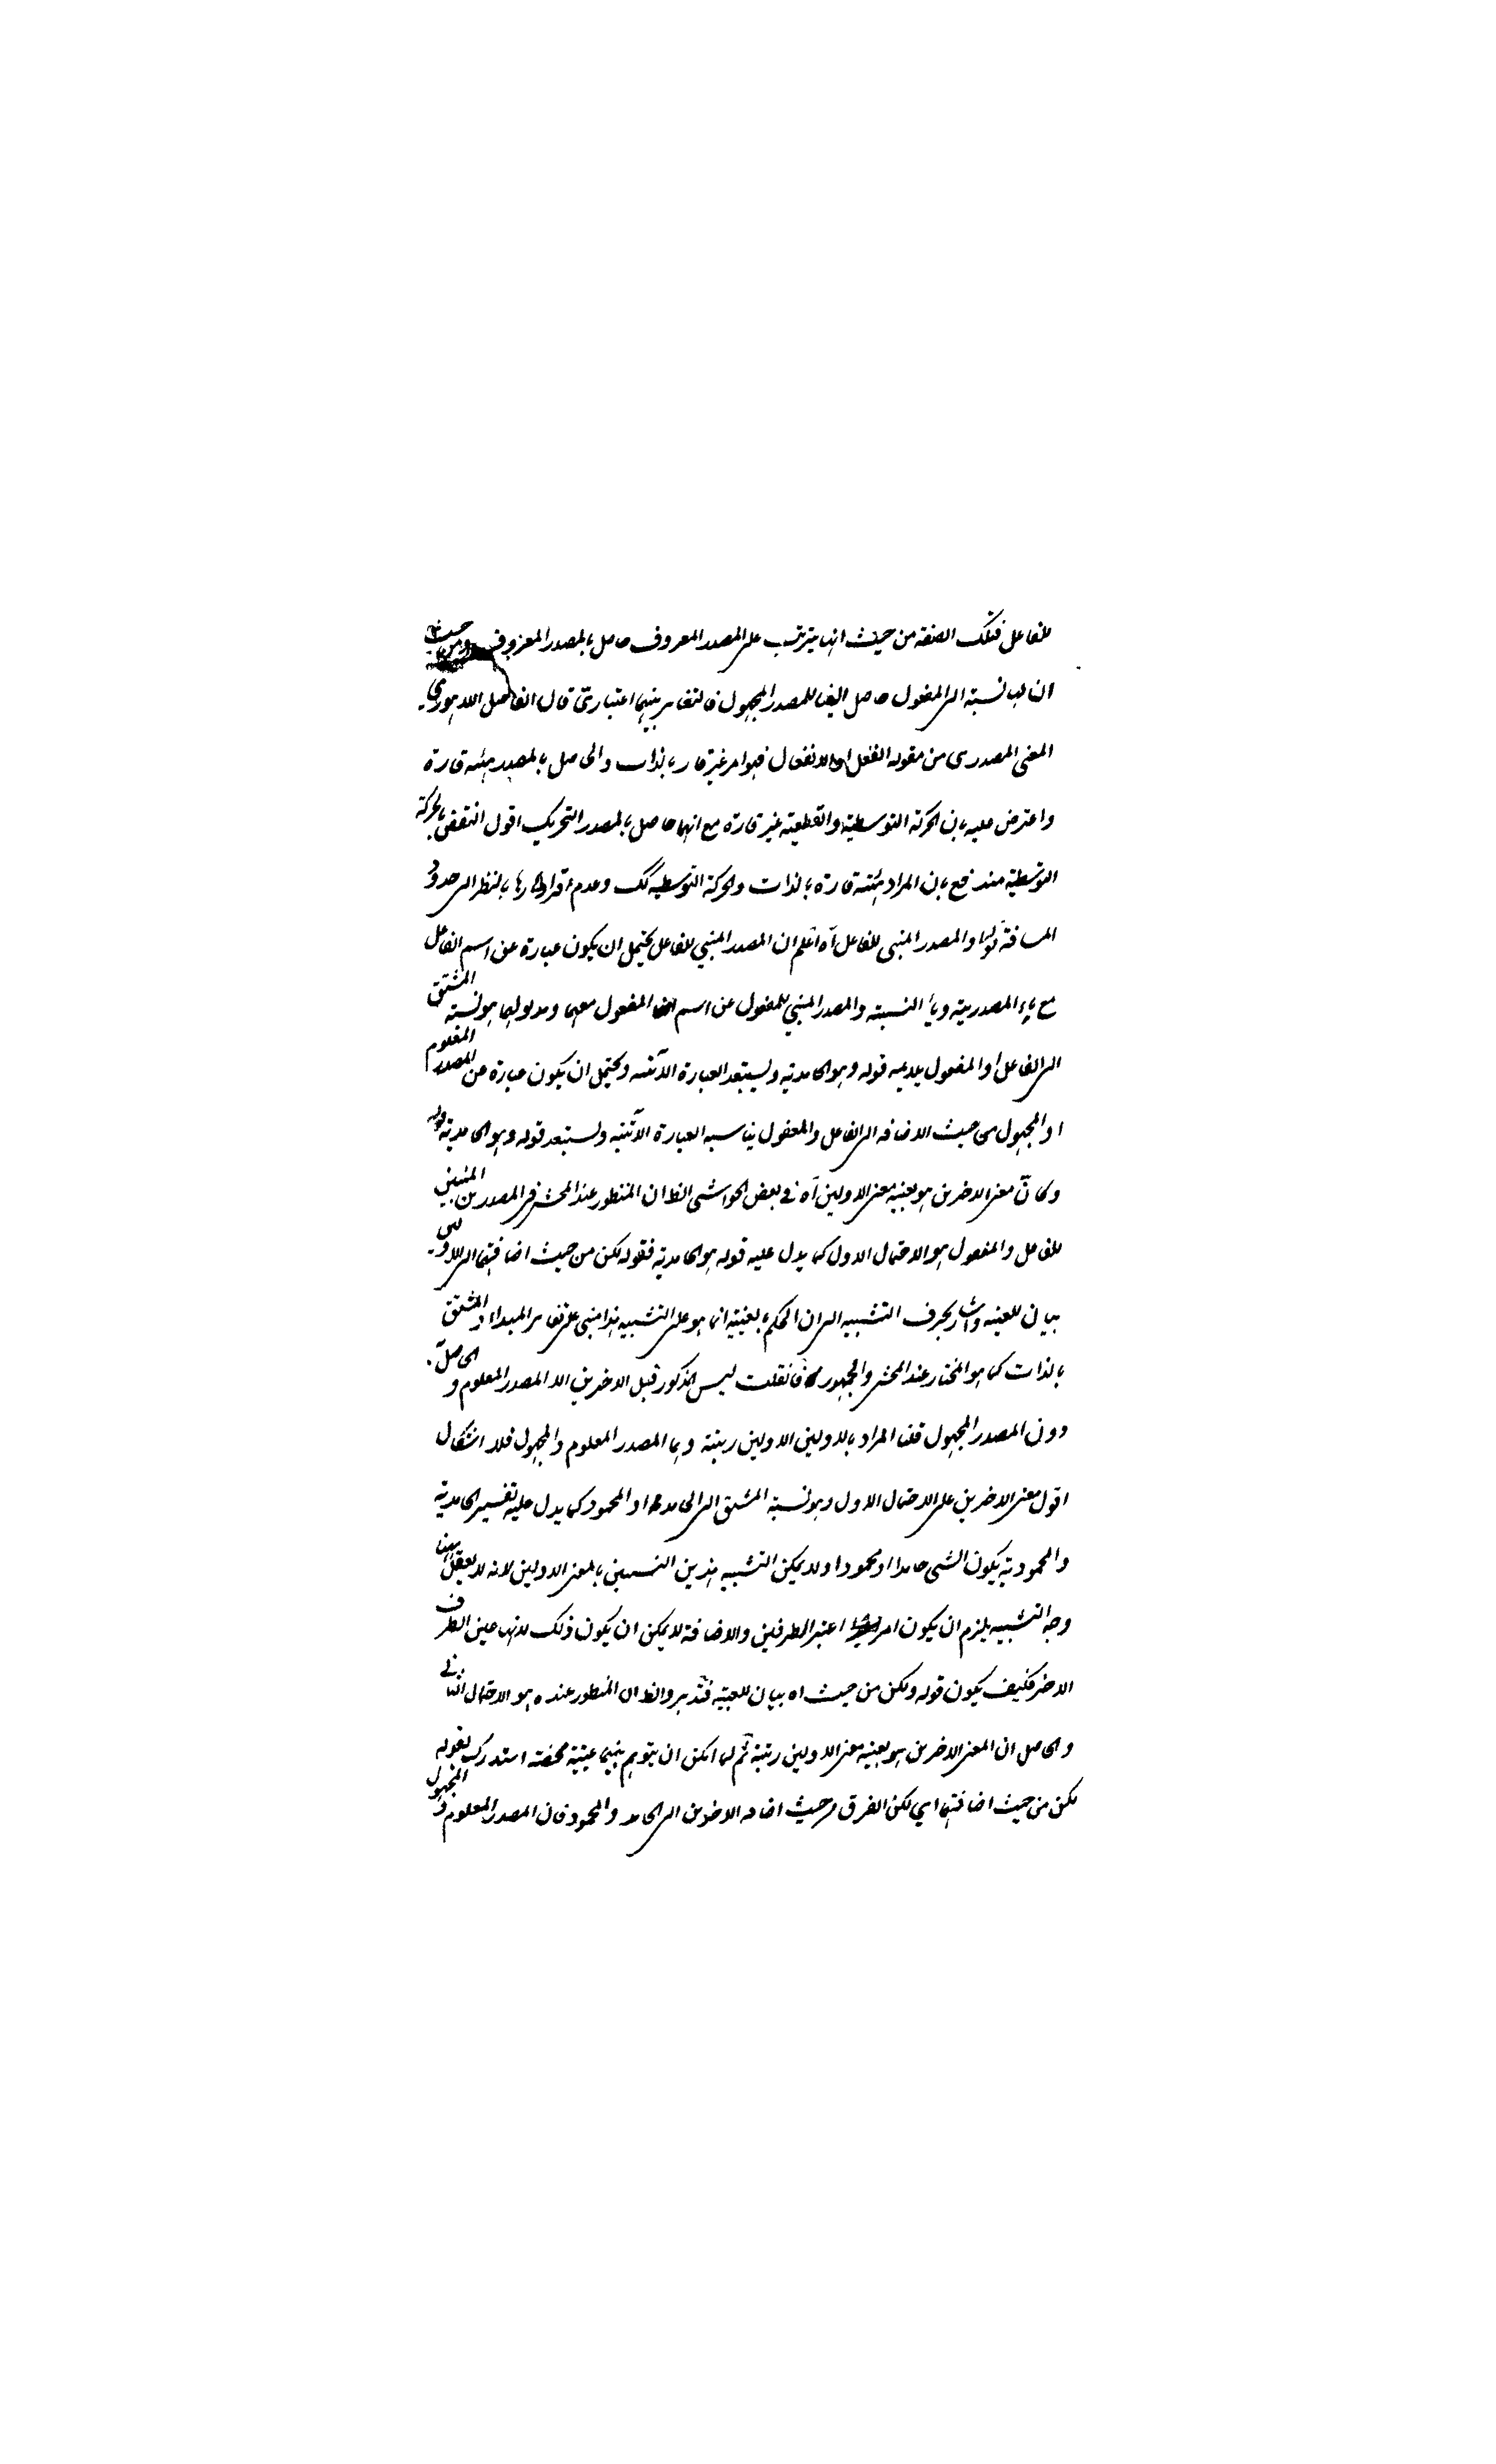 للفاعل فتلك الصفة من حيث انها يترتب على المصدر المعروف حاصل بالمصدر المعروف ومن حيث
ان لها نسبة الى المفعول حاصل ايضا للمصدر المجهول فالتغاير بينهما اعتباري قال الفاضل اللاهوري
المعنى المصدري من مقولة الفعل او الانفعال فهو امر غير قار بالذات والحاصل بالمصدر هيئة قارة
واعترض عليه بان الحركة التوسطية والقطعية غير قارة مع انها حاصل بالمصدر التحريك اقول انتقض بالحركة
التوسطية مندفع بان المراد هيئة قارة بالذات والحركة التوسطية كك وعدم قرارها بالنظر الى حدود
المسافة قوله والمصدر المبني للفاعل آه اعلم ان المصدر المبني للفاعل يحتمل ان يكون عبارة عن اسم الفاعل
مع ياء المصدرية وياء النسبة والمصدر المبني للمفعول عن اسم المفعول معها ومدلولها هو نسبة المشتق
الى الفاعل او المفعول يلايمه قوله وهو الحامدية ويستبعد العبارة الآتية ويحتمل ان يكون عبارة عن المصدر المعلوم
او المجهول من حيث الاضافة الى الفاعل والمفعول يناسبه العبارة الآتية ويستبعد قوله وهو الحامدية قوله
وكان معنى الاخرين هو بعينه معنى الاولين آه في بعض الحواشي الظ ان المنظور عند المحشي في المصدرين المبنيين
للفاعل والمفعول هو الاحتمال الاول كما يدل عليه قوله هو الحامدية فقوله لكن من حيث اضافتها الى
بيان للعينية واشار بحرف التشبيه الى ان الحكم بالعينية انما هو على التشبيه هذا مبني على تغاير المبدا والمشتق
بالذات كما هو المختار عند المحشي والجمهور فانقلت ليس المذكور قبل الاخرين الا المصدر المعلوم والحاصل
دون المصدر المجهول قلنا المراد بالاولين الاولين رتبة وهما المصدر المعلوم والمجهول فلا اشكال
اقول معنى الاخرين على الاحتمال الاول وهو نسبة المشتق الى الحامد او المحمود كما يدل عليه تفسير الحامدية
والمحمودية بكون الشي حامدا او محمودا ولا يمكن التشبيه هذين النسبتين بالمعنى الاولين لانه لا يعقل ههنا
وجه التشبيه يلزم ان يكون امرا اعتبر الطرفين والاضافة لا يمكن ان يكون ذلك لانها عين الطرف
الاخر فكيف يكون قوله ولكن من حيث اه بيان للعينية فتدبر والظ ان المنظور عنده هو الاحتمال الثاني
والحاصل ان المعنى الاخرين هو بعينه معنى الاولين رتبة ثم لما امكن ان يتوهم بينهما عينية محضة استدرك بقوله
لكن من حيث اضافتها اي لكن الفرق من حيث اضافة الاخرين الى الحامد والمحمود فان المصدر المعلوم والمجهول